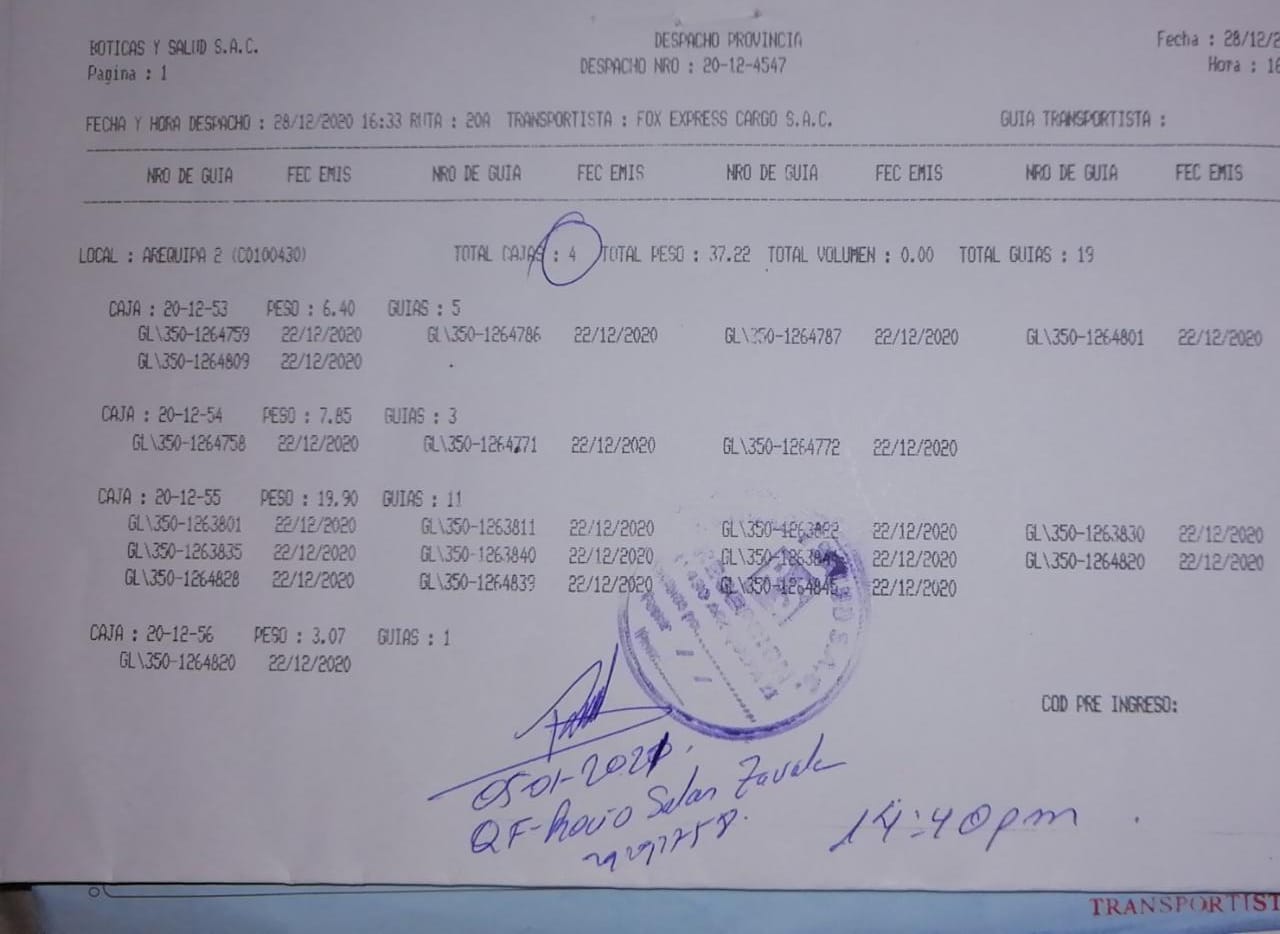 BOTICAS Y SALUD S.A.C.
DESPACHO PROVINCIA
Fecha : 28/12/2
Pagina : 1
DESPACHO NRO : 20-12-4547
Hora : 16
FECHA Y HORA DESPACHO : 28/12/2020 16:33 RUTA : 20A TRANSPORTISTA : FOX EXPRESS CARGO S.A.C. GUIA TRANSPORTISTA :
NRO DE GUIA FEC EMIS NRO DE GUIA FEC EMIS NRO DE GUIA FEC EMIS NRO DE GUIA FEC EMIS
LOCAL : AREQUIPA 2 (C0100430) TOTAL CAJAS : 4 TOTAL PESO : 37.22 TOTAL VOLUMEN : 0.00 TOTAL GUIAS : 19
CAJA : 20-12-53 PESO : 6.40 GUIAS : 5
GL\350-1264759 22/12/2020 GL\350-1264786 22/12/2020 GL\350-1264787 22/12/2020 GL\350-1264801 22/12/2020
GL\350-1264809 22/12/2020
CAJA : 20-12-54 PESO : 7.85 GUIAS : 3
GL\350-1264758 22/12/2020 GL\350-1264771 22/12/2020 GL\350-1264772 22/12/2020
CAJA : 20-12-55 PESO : 19.90 GUIAS : 11
GL\350-1263801 22/12/2020 GL\350-1263811 22/12/2020 GL\350-1263822 22/12/2020 GL\350-1263830 22/12/2020
GL\350-1263835 22/12/2020 GL\350-1263840 22/12/2020 22/12/2020 GL\350-1264820 22/12/2020
GL\350-1264828 22/12/2020 GL\350-1264839 22/12/2020 GL\350-1264845 22/12/2020
CAJA : 20-12-56 PESO : 3.07 GUIAS : 1
GL\350-1264820 22/12/2020
COD PRE INGRESO:
05-01-2021.
QF-Rocio Salas Zavala
14:40pm
TRANSPORTIST